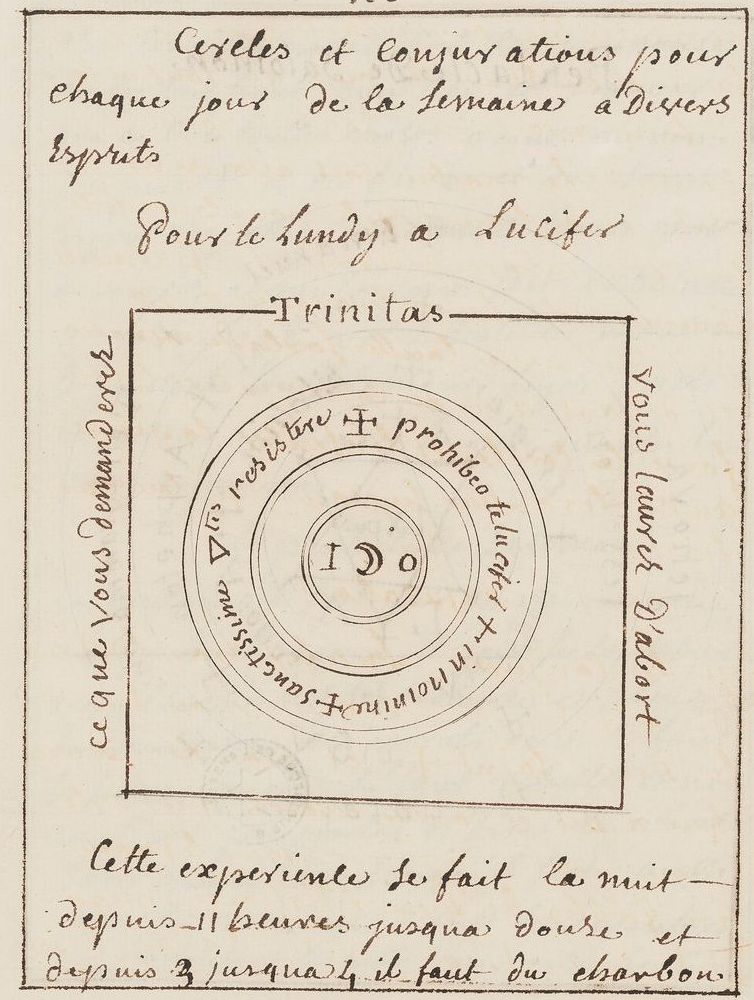 Cercles et Conjurations pour
chaque jour de la semaine a Divers
Esprits
Pour le Lundy a Lucifer
Trinitas
ce que vous demanderez
vous laurez D'abort
✠ prohibeo te lucifer + in nomine + sanctissime ▽tis resistere
I ☽ o
Cette experience se fait la nuit —
depuis 11 heures jusqua douze et
depuis 3 jusqua 4 il faut du charbon